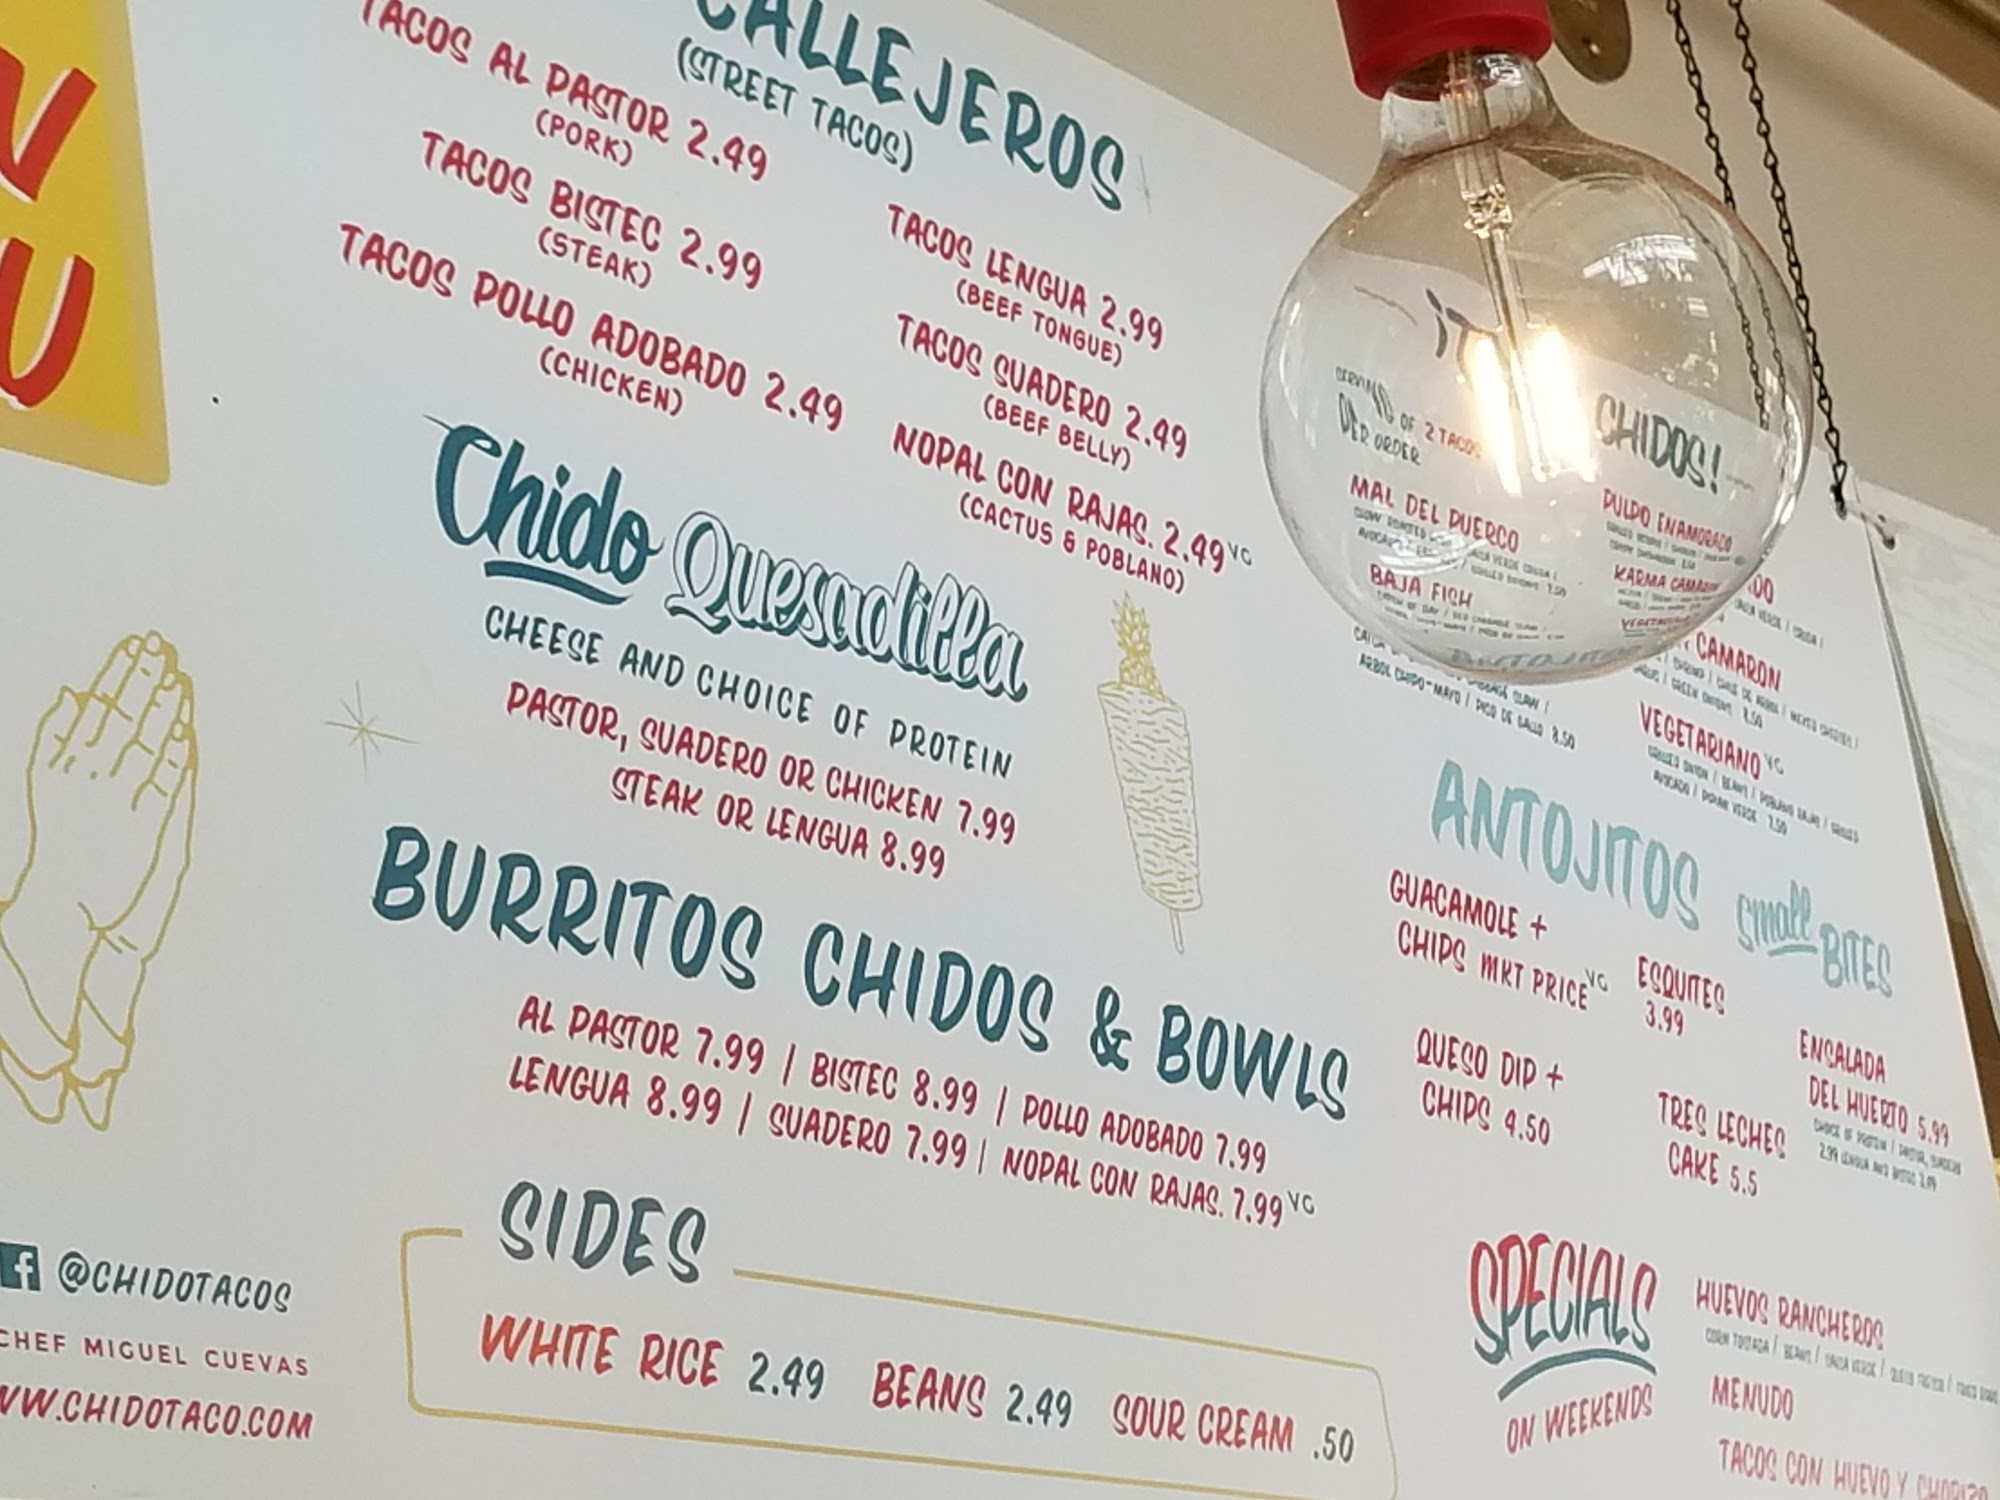 CALLEJEROS
(STREET TACOS)
TACOS AL PASTOR 2.49
(PORK)
TACOS BISTEC 2.99
(STEAK)
TACOS POLLO ADOBADO 2.49
(CHICKEN)
TACOS LENGUA 2.99
(BEEF TONGUE)
TACOS SUADERO 2.49
(BEEF BELLY)
NOPAL CON RAJAS. 2.49 VG
(CACTUS & POBLANO)
Chido Quesadilla
CHEESE AND CHOICE OF PROTEIN
PASTOR, SUADERO OR CHICKEN 7.99
STEAK OR LENGUA 8.99
BURRITOS CHIDOS & BOWLS
AL PASTOR 7.99 | BISTEC 8.99 | POLLO ADOBADO 7.99
LENGUA 8.99 | SUADERO 7.99 | NOPAL CON RAJAS. 7.99 VG
SIDES
WHITE RICE 2.49 BEANS 2.49 SOUR CREAM .50
@CHIDOTACOS
CHEF MIGUEL CUEVAS
WW.CHIDOTACO.COM
CHIDOS!
OF 2 TACOS
PER ORDER
MAL DEL PUERCO
BAJA FISH
CABBAGE SLAW /
ARBOL CHIPO-MAYO / PICO DE GALLO 8.50
PULPO ENAMORADO
KARMA CAMARON
CAMARON
GREEN ONIONS 8.50
VEGETARIANO VG
GRILLED ONION / BEANS / POBLANO RAJAS / GRILLED
AVOCADO / VERDE 7.50
ANTOJITOS small BITES
GUACAMOLE +
CHIPS MKT PRICE VG
ESQUITES
3.99
QUESO DIP +
CHIPS 4.50
TRES LECHES
CAKE 5.5
ENSALADA
DEL HUERTO 5.99
CHOICE OF PROTEIN / PASTOR, SUADERO
2.99 LENGUA AND BISTEC 3.99
SPECIALS
ON WEEKENDS
HUEVOS RANCHEROS
CORN TOSTADA / BEANS / SALSA VERDE / QUESO FRESCO /
MENUDO
TACOS CON HUEVO Y CHORIZO